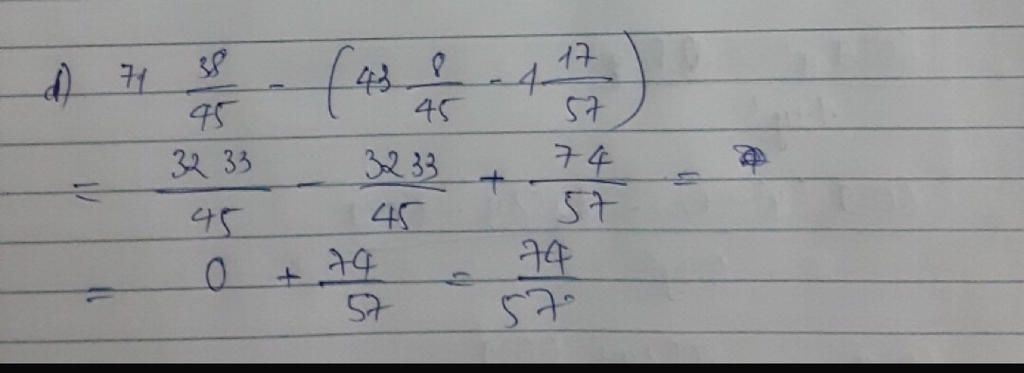 d) 71 38/45 - (43 8/45 - 1 17/57)
= 3233/45 - 3233/45 + 74/57 =
= 0 + 74/57 = 74/57.